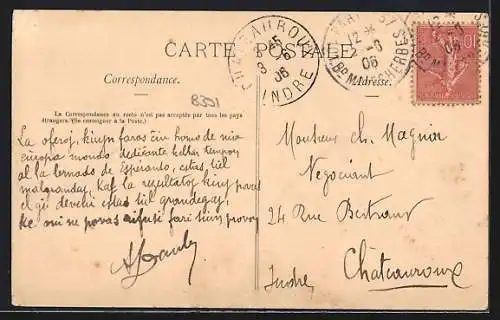 CARTE POSTALE
Correspondance.
Adresse.
La Correspondance au recto n'est pas acceptée par tous les pays
étrangers. (Se renseigner à la Poste.)
8351
CHATEAUROUX
INDRE
3 -6
06
12
2-6
06
Bd MALESHERBES
10
La oferoj, kiujn faras ĉiu homo de nia
eŭropia mondo dediĉante kelkaj tempon
al la lernado de Esperanto, estas tiel
malgrandaj, kaj la rezultatoj kiuj povas
el ĝi deveni estas tiel grandegaj,
ke ni ne povas rifuzi fari tiun provon
Monsieur Ch. Magnier
Négociant
24 Rue Bertrand
Châteauroux
Indre